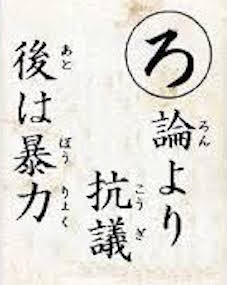 ろ
論より
ろん
抗議
こうぎ
後は暴力
あと
ぼうりょく